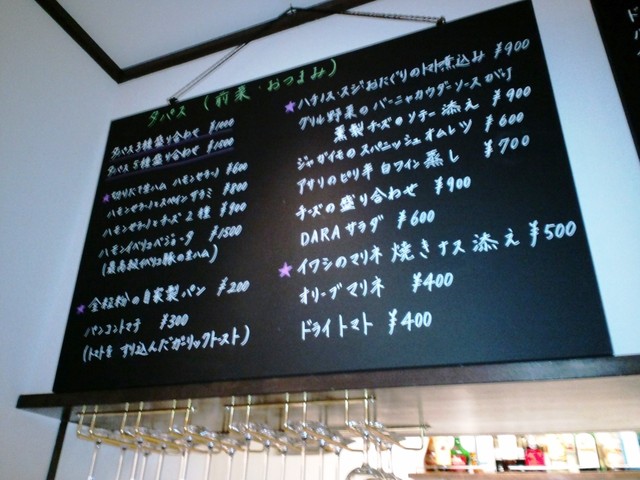 タパス (前菜・おつまみ)
タパス3種盛り合わせ ¥1000
タパス5種盛り合わせ
★切りたて生ハム ハモンセラーノ ¥600
ハモンセラーノ ¥800
ハモンセラーノとチーズ2種 ¥900
ハモンイベリコベジョータ ¥1500
(最高級イベリコ豚の生ハム)
★全粒粉の自家製パン ¥200
パンコントマテ ¥300
(トマトを すり込んだガーリックトースト)
★ハチノス・スジおたぐりのトマト煮込み ¥900
グリル野菜の バーニャカウダーソースがけ
燻製チーズのソテー添え ¥900
ジャガイモのスパニッシュオムレツ ¥600
アサリのピリ辛 白ワイン蒸し ¥700
チーズの盛り合わせ ¥900
DARAサラダ ¥600
★イワシのマリネ 焼きナス添え ¥500
オリーブマリネ ¥400
ドライトマト ¥400